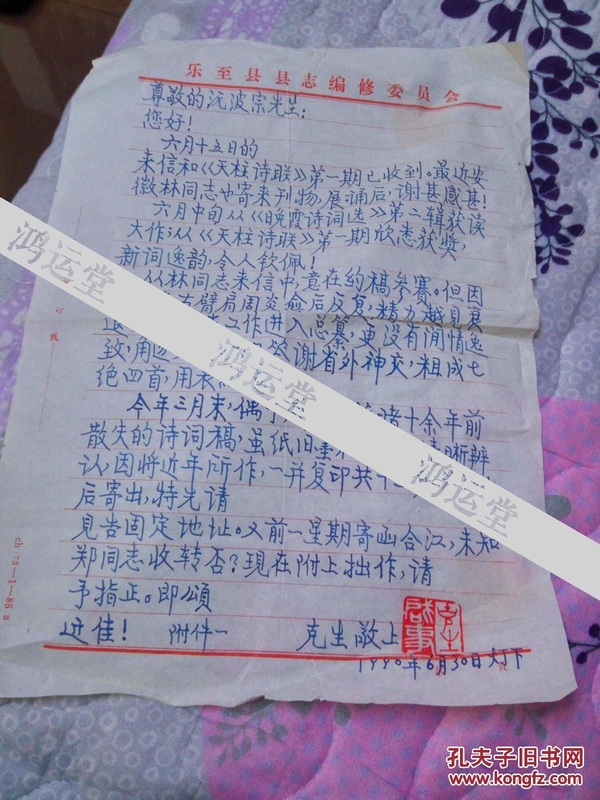 乐至县县志编修委员会
尊敬的沅波宗先生:
您好!
六月十五日的
来信和《天柱诗联》第一期已收到。最近安
徽林同志也寄来刊物,展诵后,谢甚感甚!
六月中旬从《晚霞诗词选》第二辑获读
大作;从《天柱诗联》第一期欣悉获奖
新词逸韵,令人钦佩!
从林同志来信中,意在约稿参赛。但因
右臂肩周炎愈后反复,精力越见衰
退 工作进入总纂,更没有闲情逸
致,用 答谢省外神交,粗成七
绝四首,用表
今年三月末,偶 睹十余年前
散失的诗词稿,虽纸旧 清晰辨
认,因将近年所作,一并复印共十
后寄出,特先请
见告固定地址。又前一星期寄函合江,未知
郑同志收转否?现在附上拙作,请
予指正。即颂
近佳! 附件一 克生敬上
1990年6月30日灯下
订
线
鸿运堂
鸿运堂
鸿运堂
孔夫子旧书网
www.kongfz.com